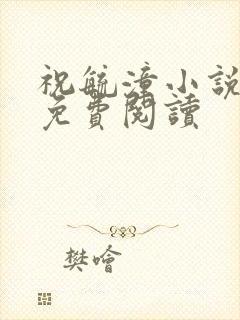 祝毓漳小說
免費閱讀
樊噲